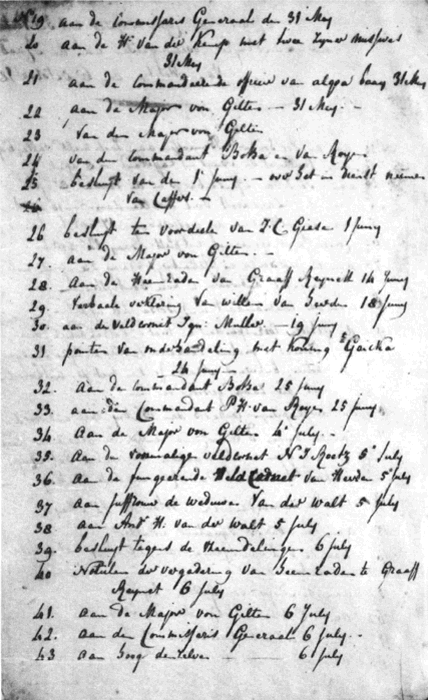 No 19 aan de Commissaris Generaal den 31 Mey
20 aan de Hr van der Kemp met twee zyner missives
31 Mey
21 aan de Commandeerende officier van algoa baay 31 Mey
22 aan de Major von Gilten — 31 Mey. —
23 Van den Major von Gilten
24 van den Commandant Botha en van Rooyen
25 besluyt van den 1e Juny. — over het in dienst neemen
van Caffers. —
26 besluyt ten voordeele van J. C. Giese 1 Juny
27. aan de Major von Gilten. —
28. Aan de Heemraden van Graaff Reynett 14 Juny
29. Verbaale verklering van willem van Heerden 18 Juny
30. aan de Veldcornet Ign: Muller — 19 Juny
31 pointen van onderhandeling met Koning Gaicka
24 Juny —
32. Aan de Commandant Botha 25 Juny
33. aan den Commandant P. H. van Rooyen 25 Juny
34. Aan de Major von Gilten 4e July. —
35. Aan de voormalige veldcornet N J 5e July
36. Aan de fungeerende Veld Cornet van Heerden 5e July
37 aan Juffrouw de weduwe Van der Walt 5 July
38 aan And: H. van der Walt 5 July
39. besluyt tegens de Vreemdelingen 6 July
40 Notulen der vergadering van Heemraden te Graaff
Reynet 6 July
41. aan de Major von Gilten 6 July
42. aan den Commissaris Generaal 6 July. —
43 aan — 6 July